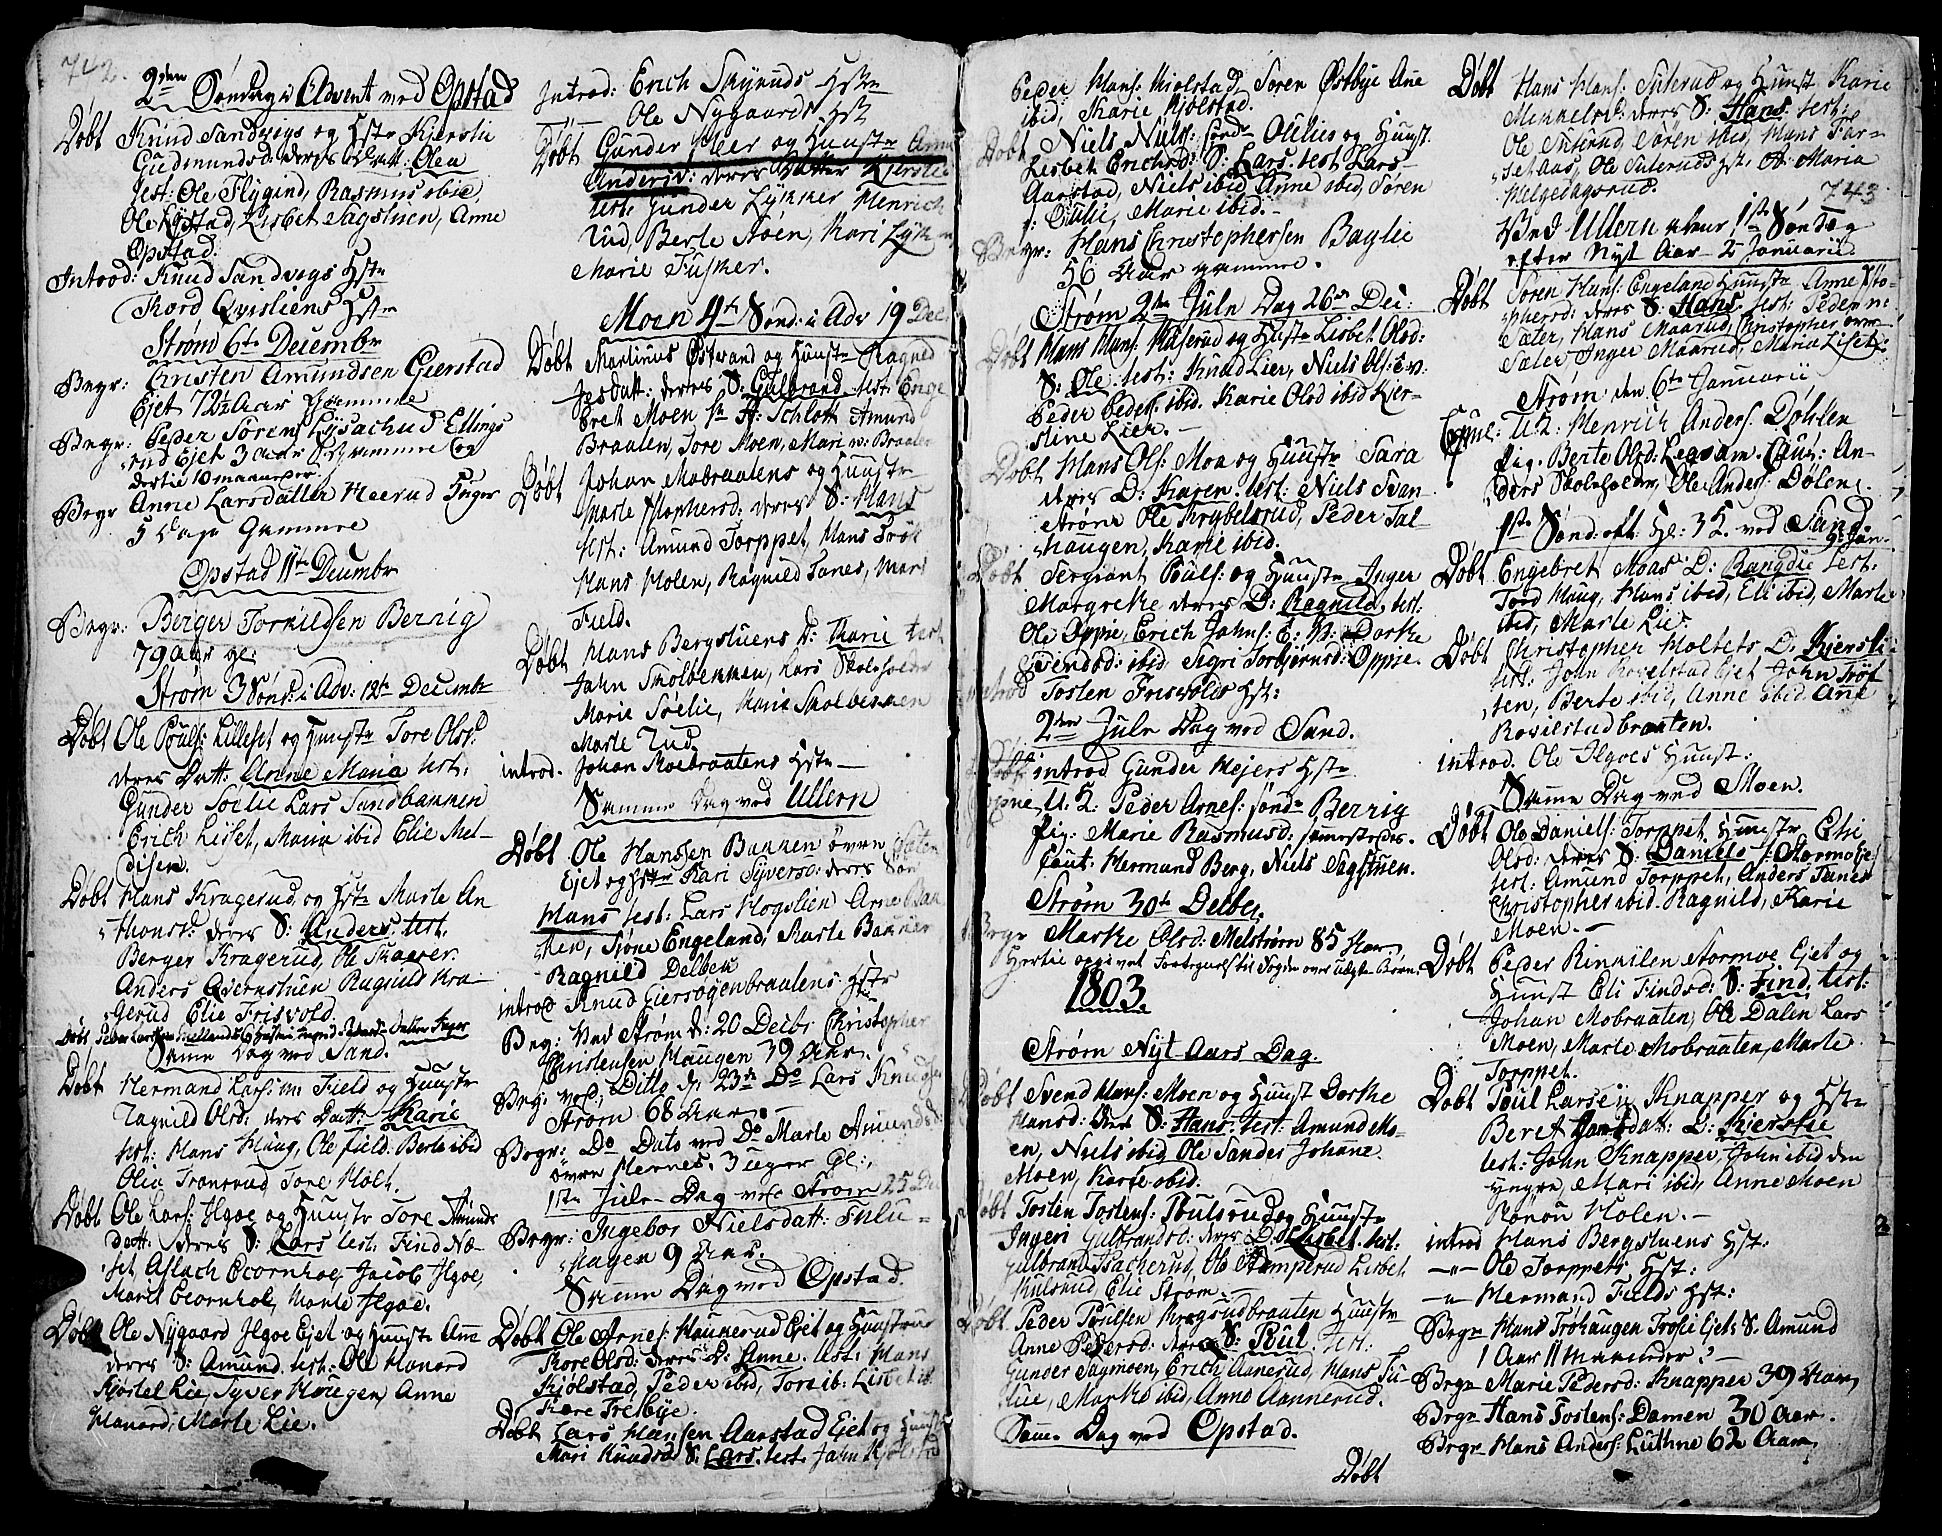 742.
2den Søndag i Advent ved Opstad
Døbt Knud Sandvigs og Hstr Kjerstie
Gudmundsd: deres Datt: Olea
test: Ole Flygind, Rasmus ibid,
Ole Opstad, Lisbet Sagstuen, Anne
Opstad.
Introd: Knud Sandvigs Hstr
Thord Qvisliens Hstr
Strøm 6te Decembr
Begr: Christen Amundsen Gierstad
Ejet 72½ Aar Gammel
Begr: Peder Søren Lysachud Ellings
rud Ejet 3 Aar Gamme
dertie 10 maaneder.
Begr Anne Larsdatter Heerud
5 Dage Gammel
Opstad 11te Decembr
Begr: Berger Torkildsen Berrig
79 Aar gl:
Strøm 3 Sønd: i Adv: 12te Decembr
Døbt Ole Pouls: Lilleset og Hustr Tore Olsd:
deres Datt: Anne Maria test:
Gunder Soelie Lars Sandbakken
Erich Liset, Maria ibid Elie Mel-
disen.
Døbt Hans Kragerud, og Hstr Marte An
thonsd: deres S: Anders. test.
Berger Kragerud, Ole
Anders Qvernstuen Ragnild Kra-
gerud Elie Frisvold.
Samme Dag ved Sand.
Døbt Hermand Lars: m Field og Hustr
Ragnild Olsd: deres Datt: Karie
test: Hans Haug, Ole field. Berte ibid
Olia Tronsrud Tore Holt.
Døbt Ole Lars: Ilgoe og Hustr Tore Amunds
datt: deres S: Lars test: Find Næ-
set Aslach Ecornhol, Jacob Ilgoe,
Marit Ecornhol, Marte Ilgoe.
Døbt Ole Nygaard Ilgoe Ejet og Hustr Anne
deres S: Amund. test: Ole Hanord
Kjøstel Lie, Syver Haugen, Anne
Hanord, Marte Lie.
Introd: Erich Skynuds Hstr
Ole Nygaards Hst
Døbt Gunder Meer og Hustr Anne
Andersd: deres Datter Kjerstie
test: Gunder Lykker Henrich
Rud, Berte Støen, Kari Lyk
Marie Fusker.
Moen 4de Sønd: i Adv 19 Dec.
Døbt Martinus Østvand og Hustr Ragnild
deres S: Gulbrand. test: Enge
bret Moen Sr H: Schlott Amund
Braaten, Tore Moen, Mari v: Braaten
Døbt Johan Mobraatens og Hustr
Marte Xstophersd: deres S: Hans
test: Amund Torppet, Hans
Hans Holen, Ragnild Tanes, Mari
Field.
Døbt Hans Bergstuens D: Marie test
John Skolbekken, Lars Skoleholder
Marie Søelie, Marie Skolbekken
Marte Rud.
introd. Johan Moebraatens Hstr —
Samme Dag ved Ullern
Døbt Ole Hanssen Bakken øvre Sæter
Ejet og Hstr Kari Syversd: deres Søn
Hans test: Lars Hogslien Arne Bak
ken, Tjøne Engeland, Marte Bakken
Ragnild Delbek
introd Knud Giersøgenbraatens Hstr
Beg: Ved Strøm d: 20 Decbr Christopher
Christensen Haugen 39 Aar.
Beg: ved Ditto d: 23de Do Lars Knuds
Strøm 68 Aar. —
Begr: Do Dato ved Do Marte Amundsd:
øvre Hernes. 3 uger Gl:
1ste Jule Dag ved Strøm 25 De
Begr: Ingebor Nielsdatt: Sulu-
hagen 9 Aar.
Samme Dag ved Opstad.
Døbt Ole Arnes: Haunerud Ejet og Hustrue
Kore Olsd: deres D: Anne. test: Hans
Kjølstad, Peder ibid, Tore ib: Lisbet ib
Kare Frelbye.
Døbt Lars Hansen Aarstad Ejet og Hustr
Mari Knudsd S: Lars. test. John Kjølstad
Peder Hans: Kiolstad Søren Østbye Ane
ibid, Karie Kjølstad.
Døbt Niels Niels: søndr Oulies og Hust.
Lisbet Erichsd: S: Lars. test Lars
Aarstad, Niels ibid, Anne ibid, Søren
Oulie, Marie ibid.
Begr: Hans Christophersen Baglie
56 Aar gamme.
Strøm 2den Jule Dag 26de Dec:
Døbt Hans Hans: Haserud og Hustr Lisbet Olsd:
S: Ole. test: Knud Lier, Niels Ols: ibid:
Peder Peders: ibid. Karie Olsd ibid Kier-
stine Lier. —
Døbt Hans Ols: Moa og Hustr Sara
deres D: Karen. test: Niels Svan
strøm Ole Krybelsrud, Peder Tal-
haugen, Karie ibid.
Døbt Sergiant Pouls: og Hustr Inger
Margrete deres D: Ragnild. test:
Ole Oppie, Erich Johns: Dorte
Svendsd: ibid Sigri Torbjørnsd: Oppie.
introd Tosten Frisvolds Hst:
2den Jule Dag ved Sand.
introd Gunder Mejers Hstr
U. L: Peder Arnes: søndr Berrig
Pig: Marie Rasmusd: samestedes.
Caut. Hermand Berg, Niels Sagstuen.
Strøm 30te Decber.
Begr Marte Olsd: Melstrøm 85 Aar
1803.
Strøm Nyt Aars Dag.
Døbt Svend Hans: Moen og Hust Dorthe
Hansd: deres S: Hans. test: Amund Mo-
en, Niels ibid Ole Sander Johanne
Moen, Karte ibid.
Døbt Tosten Tostens: Poulsrud og Hustr
Ingeri Gulbrandsd: deres D: Lisbet. test:
Gulbrand Isacherud, Ole Stamperud Lisbet
Kulsrud, Elie Strøm.
Døbt Peder Poulsen Kragsrudbraaten Hustr
Anne Pedersd: deres S: Poul. test:
Gunder Sagmoen, Erich Aanerud, Hans Su-
lue, Marte ibid, Anne Aannerud.
Sam: Dag ved Opstad.
Døbt
Døbt Hans Hans: Suterud og Hust Karie
Mikkelsd: deres S: Hans test:
Ole Suterud Søren ibid, Hans Tor-
setaas, Ole Suteruds Hst A: Maria
Helgedagsrud.
743
Ved Ullern 1ste Søndag
efter Nyt Aar 2 Januarii
Døbt Søren Hans: Engeland Hustr Anne Xsto-
phersd: deres S: Hans test: Peder
Sæter, Hans Maarud, Christopher øvre
Sæter Inger Maarud, Maria Liset.
Strøm den 6te Januarii
Copul: U: L: Henrich Anders: Døhlen
Pig. Berte Olsd: Legvam. Caut: An-
ders Skoleholder, Ole Anders: Dølen.
1ste Sønd: eft: Hel: 3 K. ved Sand. 9de Jan.
Døbt Engebret Moas D: Rangdie test:
Tord Haug, Hans ibid, Eli ibid, Marte
ibid, Marte Lie.
Døbt Christopher Holtets D: Kiersti
test: John Rovelstad Ejet John Trøf
ten, Berte ibid, Anne ibid Anne
Rovilstadbraaten.
introd. Ole Ilgoes Hust:
Samme Dag ved Moen.
Døbt Ole Daniels: Torppet Hustr Elie
Olsd: deres S: Daniels
test: Amund Torppet, Anders Tanes
Christopher ibid. Ragnild, Karie
Moen. —
Døbt Peder Rinkilen Stormoe Ejet og
Hust Eli Findsd: S: Find. test:
Johan Mobraaten, Ole Dalen Lars
Moen, Marte Mobraaten, Marte
Torppet.
Døbt Poul Larsen Knapper og Hst
Beret datt: D: Kierstie
test: John Knapper, John ibid den
yngre, Mari ibid, Anne Moen
Ronou Holen. —
introd Hans Bergstuens Hst:
—"— Ole Torppets Hst:
—"— Hermand Fields Hst:
Begr Hans Trøhaugen Ejets S. Amund
1 Aar 11 Maaneder —
Begr Marie Pedersd: Knapper 39 Aar
Begr Hans Tostens: Damen 30 Aar.
Begr Hans Anders: Luthne 62 Aar